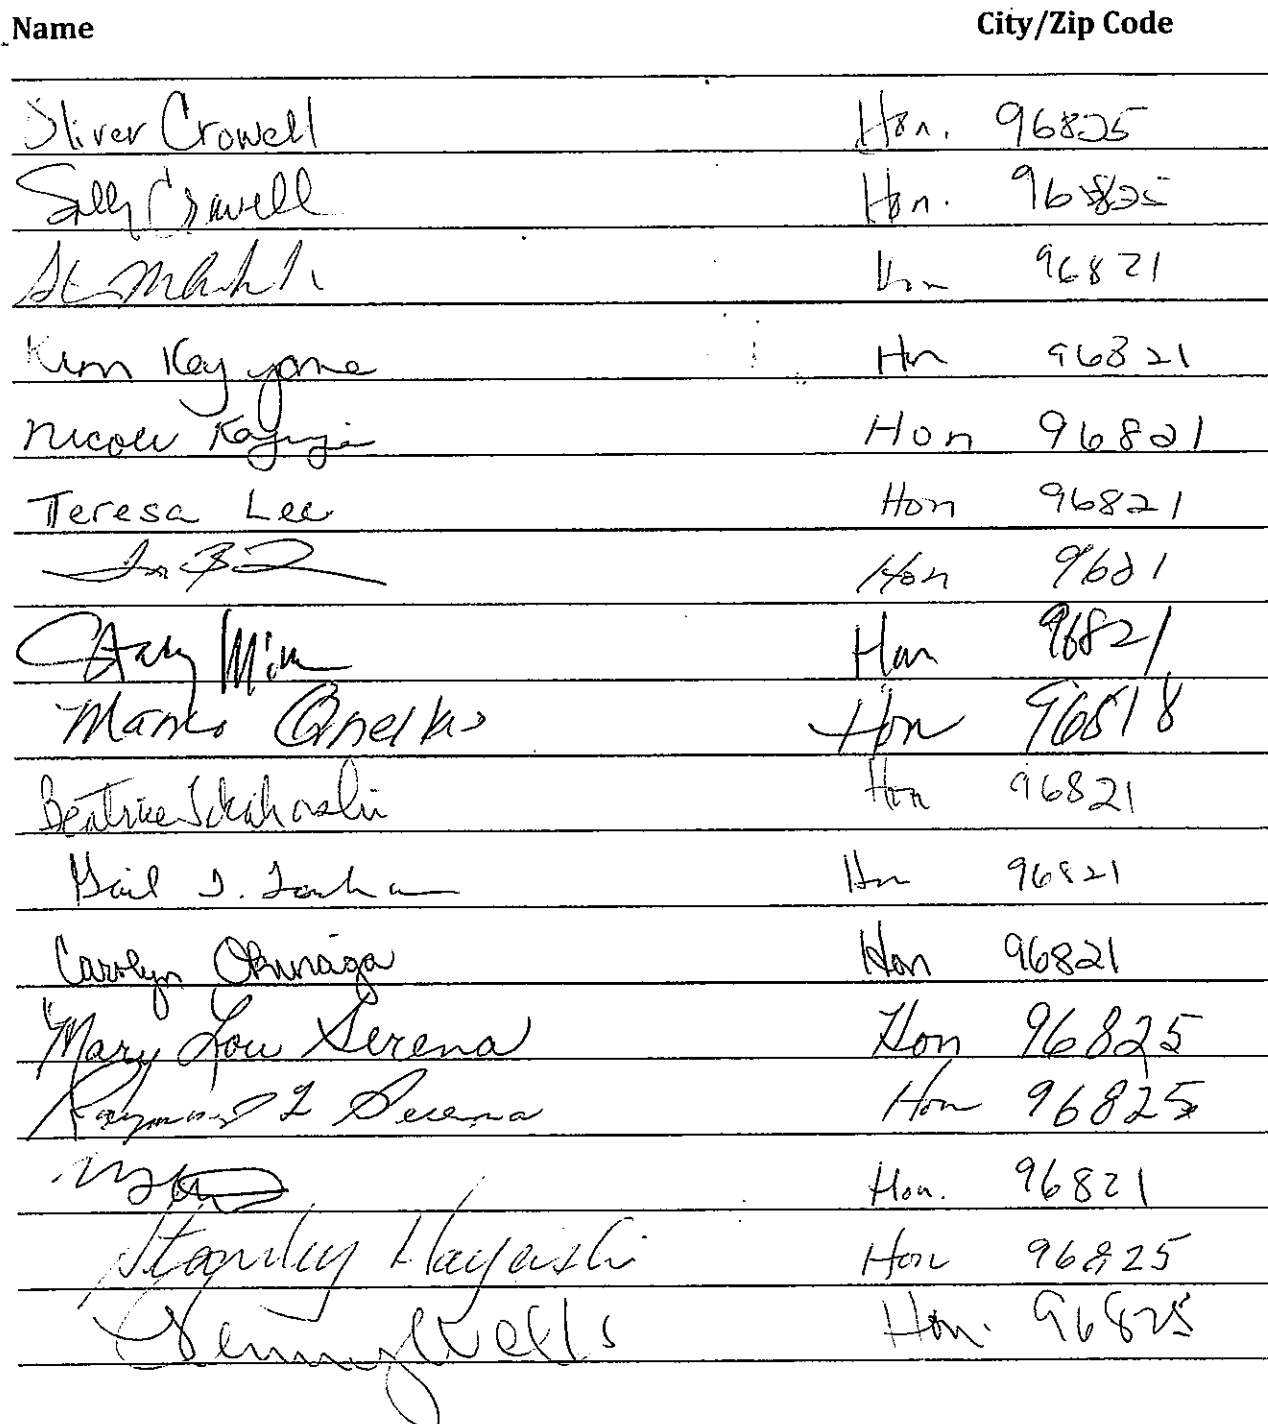 Name City/Zip Code
Oliver Crowell Hon. 96825
Sally Crowell Hon. 96825
Hon 96821
Kim Hon 96821
Nicole Hon 96821
Teresa Lee Hon 96821
Hon 9621
Hon 96821
Hon 96818
Beatrice Hon 96821
Gail Hon 96821
Carolyn Okunaga Hon 96821
Mary Lou Serena Hon 96825
Raymond L Serena Hon 96825
Hon. 96821
Stanley Hayashi Hon 96825
Wells Hon. 96825